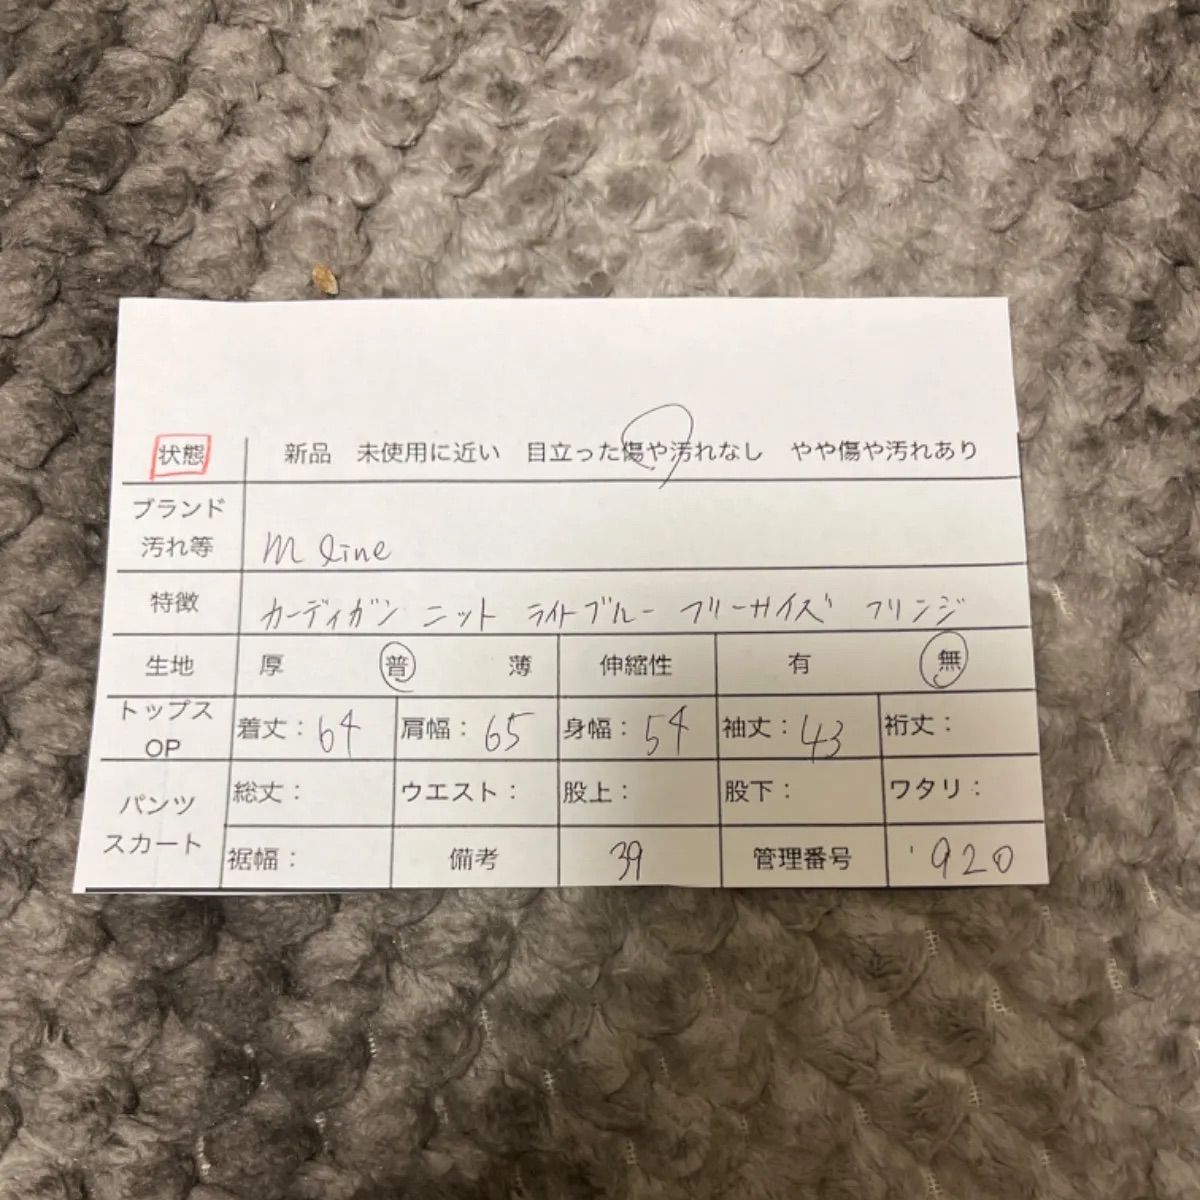 状態 新品 未使用に近い 目立った傷や汚れなし やや傷や汚れあり
ブランド
汚れ等 m line
特徴 カーディガン ニット ライトブルー フリーサイズ フリンジ
生地 厚 普 薄 伸縮性 有 無
トップス
OP 着丈：64 肩幅：65 身幅：54 袖丈：43 裄丈：
パンツ
スカート 総丈： ウエスト： 股上： 股下： ワタリ：
裾幅： 備考 39 管理番号 920